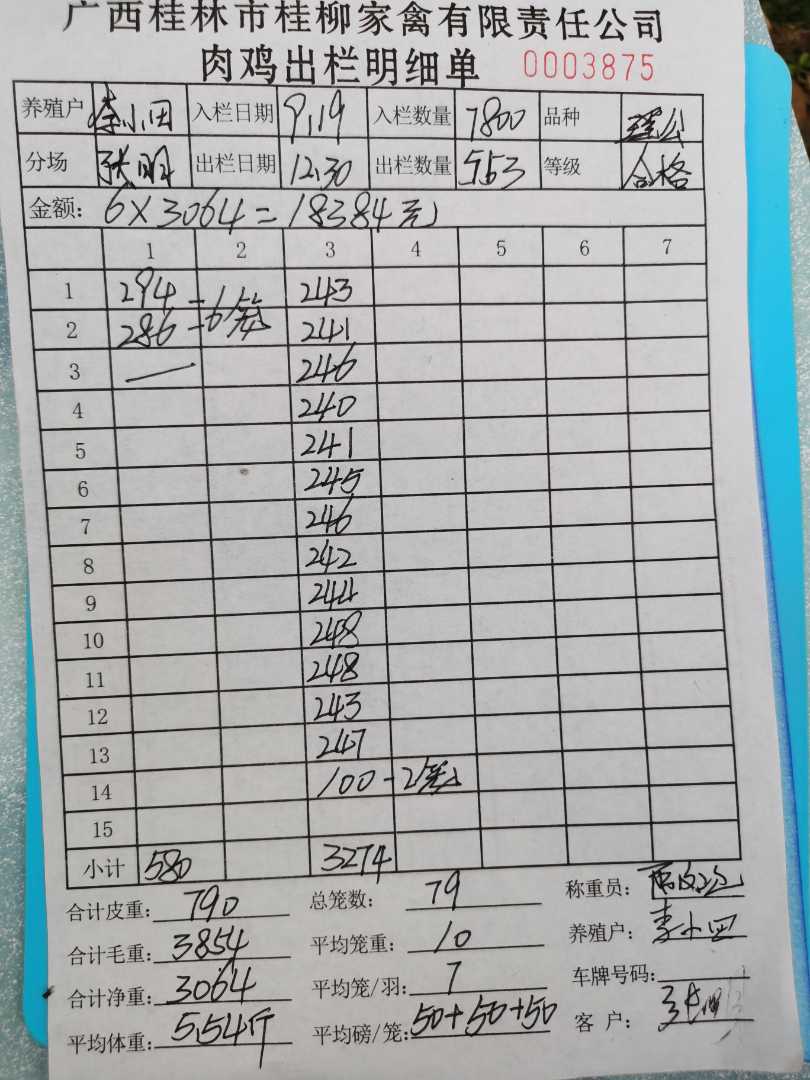 广西桂林市桂柳家禽有限责任公司
肉鸡出栏明细单 0003875
养殖户 李小田 入栏日期 9.19 入栏数量 7800 品种 瑶公
分场 张明 出栏日期 12.30 出栏数量 553 等级 合格
金额: 6×3064=18384元
1 2 3 4 5 6 7
1 294 - 6笼 243
2 286 - 6笼 241
3 — 246
4 240
5 241
6 245
7 246
8 242
9 244
10 248
11 248
12 243
13 247
14 100 - 2笼
15
小计 580 3274
合计皮重: 790 总笼数: 79 称重员:
合计毛重: 3854 平均笼重: 10 养殖户: 李小田
合计净重: 3064 平均笼/羽: 7 车牌号码:
平均体重: 5.54斤 平均磅/笼: 50+50+50 客 户: 张明